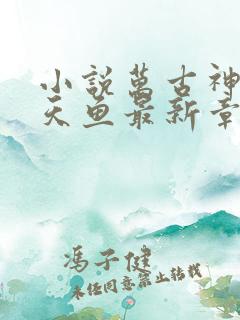 小説萬古神
天魚最新章
馮子健
未經同意禁止轉載